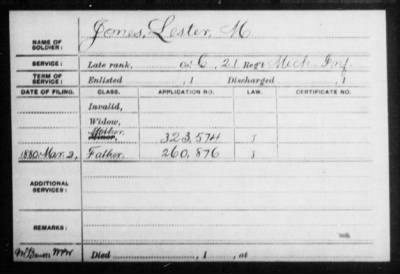 NAME OF SOLDIER: Jones, Lester, M.
SERVICE: Late rank, Co C, 21 Reg't Mich. Inf.
TERM OF SERVICE: Enlisted , 1 Discharged , 1
DATE OF FILING. CLASS. APPLICATION NO. LAW. CERTIFICATE NO.
Invalid,
Widow,
Mother
Minor, 323,574 J
1880 Mar. 2, Father, 260,876 J
ADDITIONAL SERVICES:
REMARKS:
Died , 1 , at